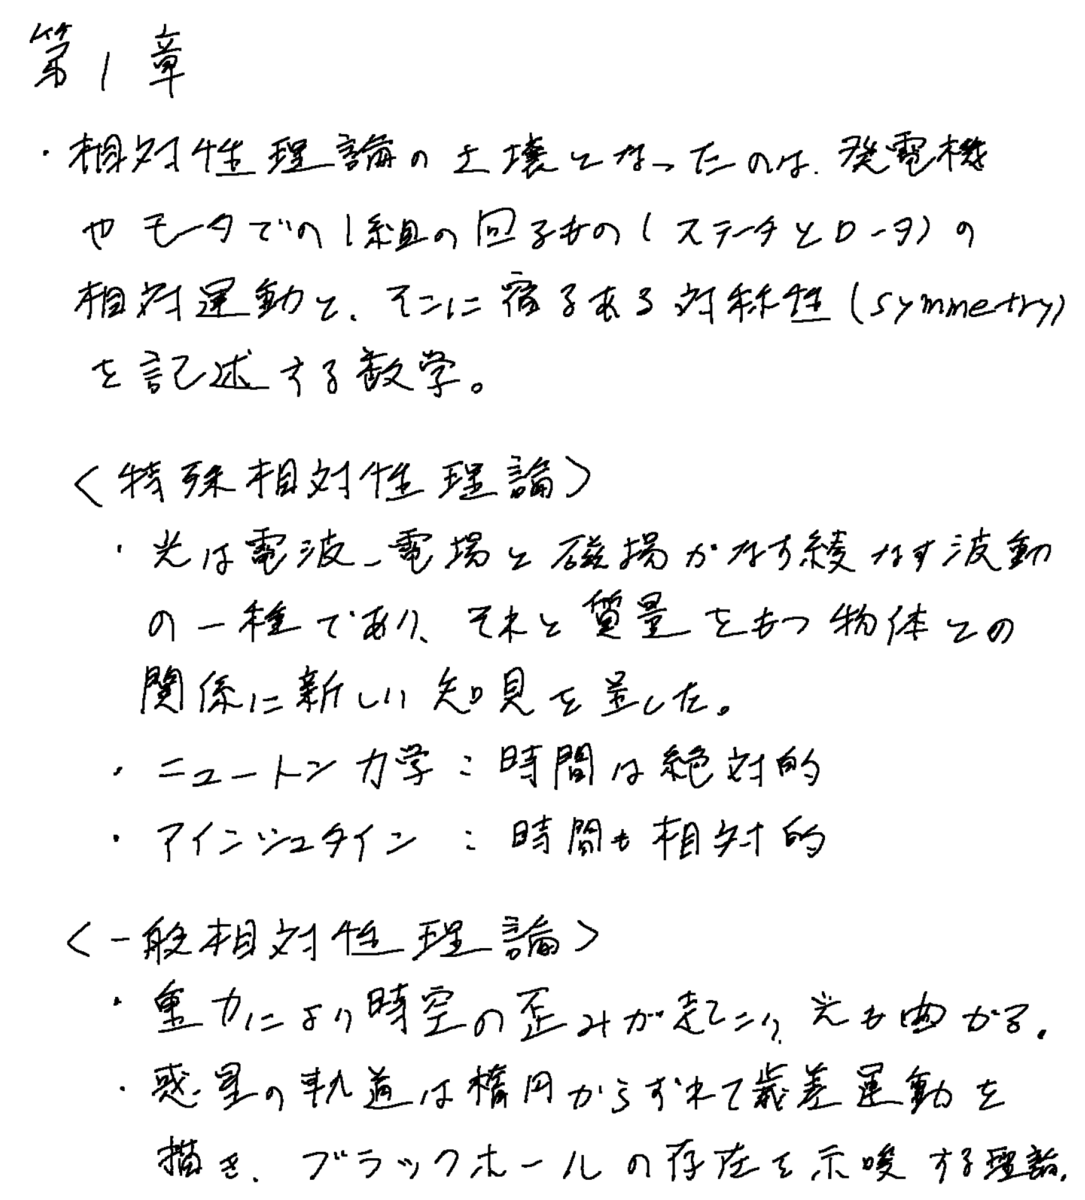 第1章
・相対性理論の土壌となったのは、発電機
や モータでの1組の回るもの(ステータとロータ)の
相対運動と、そこに宿るある対称性(symmetry)
を記述する数学。
<特殊相対性理論>
・光は電波、電場と磁場がなす綾なす波動
の一種であり、それと質量をもつ物体との
関係に新しい知見を呈した。
・ニュートン力学:時間は絶対的
・アインシュタイン:時間も相対的
<一般相対性理論>
・重力により時空の歪みが起こり、光も曲がる。
・惑星の軌道は楕円からずれて歳差運動を
描き、ブラックホールの存在を示唆する理論。